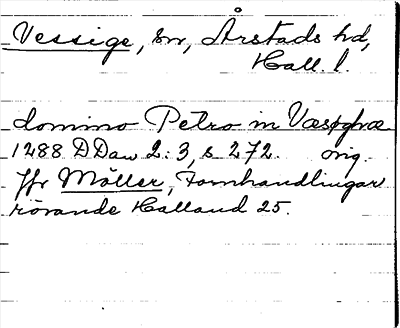 Vessige, sn, Årstads hd,
Hall. l.
domino Petro in Væsøghæ
1288 DDan 2:3, s 272. orig.
Jfr Möller, Fornhandlingar
rörande Halland 25.